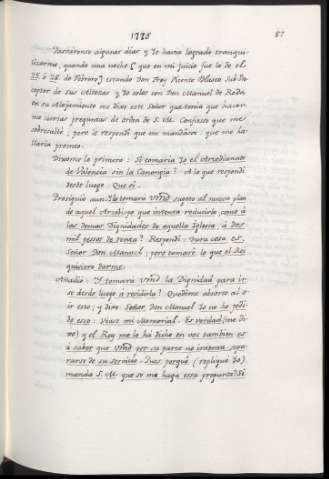 1775
87
Pasáronse algunos dias y Yo havia logrado tranqui-
lizarme, quando una noche (que en mi juicio fue la de el
25. ó 26. de Febrero) estando Don Fray Vicente Blasco Sub-Pre-
ceptor de sus Altezas y Yo solos con Don Manuel de Roda
en su Alojamiento me dixo este Señor que tenia que hacer-
me varias preguntas de orden de S. M. Confieso que me
sobresalté; pero le respondi que me mandáse que me ha-
llaria pronto.
Dixome lo primero: Si tomaria Yo el Arzedianato
de Valencia sin la Canongía? A lo que respondi
desde luego: Que si.
Prosiguió aun: Ylo tomara Vmd. sugeto al nuevo plan
de aquel Arzobispo que intenta reducirlo, como á
las demas Dignidades de aquella Iglesia, á Dos
mil pesos de renta? Respondí: Dura cosa es,
Señor Don Manuel; pero tomaré lo que el Rei
quisiere darme.
Añadió: Y tomará Vmd. la Dignidad para ir-
se desde luego á recidirla? Quedéme absorto al o-
ir esto; y dixe: Señor Don Manuel Yo no he pedi-
do esso: Vease mi Memorial. Es verdad (me di-
xo) y el Rey me la há dicho en voz tambien es
á saber que Vmd. por su parte no intenta sepa-
rarse de su servicio. Pues porqué (repliqué Yo)
manda S. M. que se me haga essa pregunta? Si